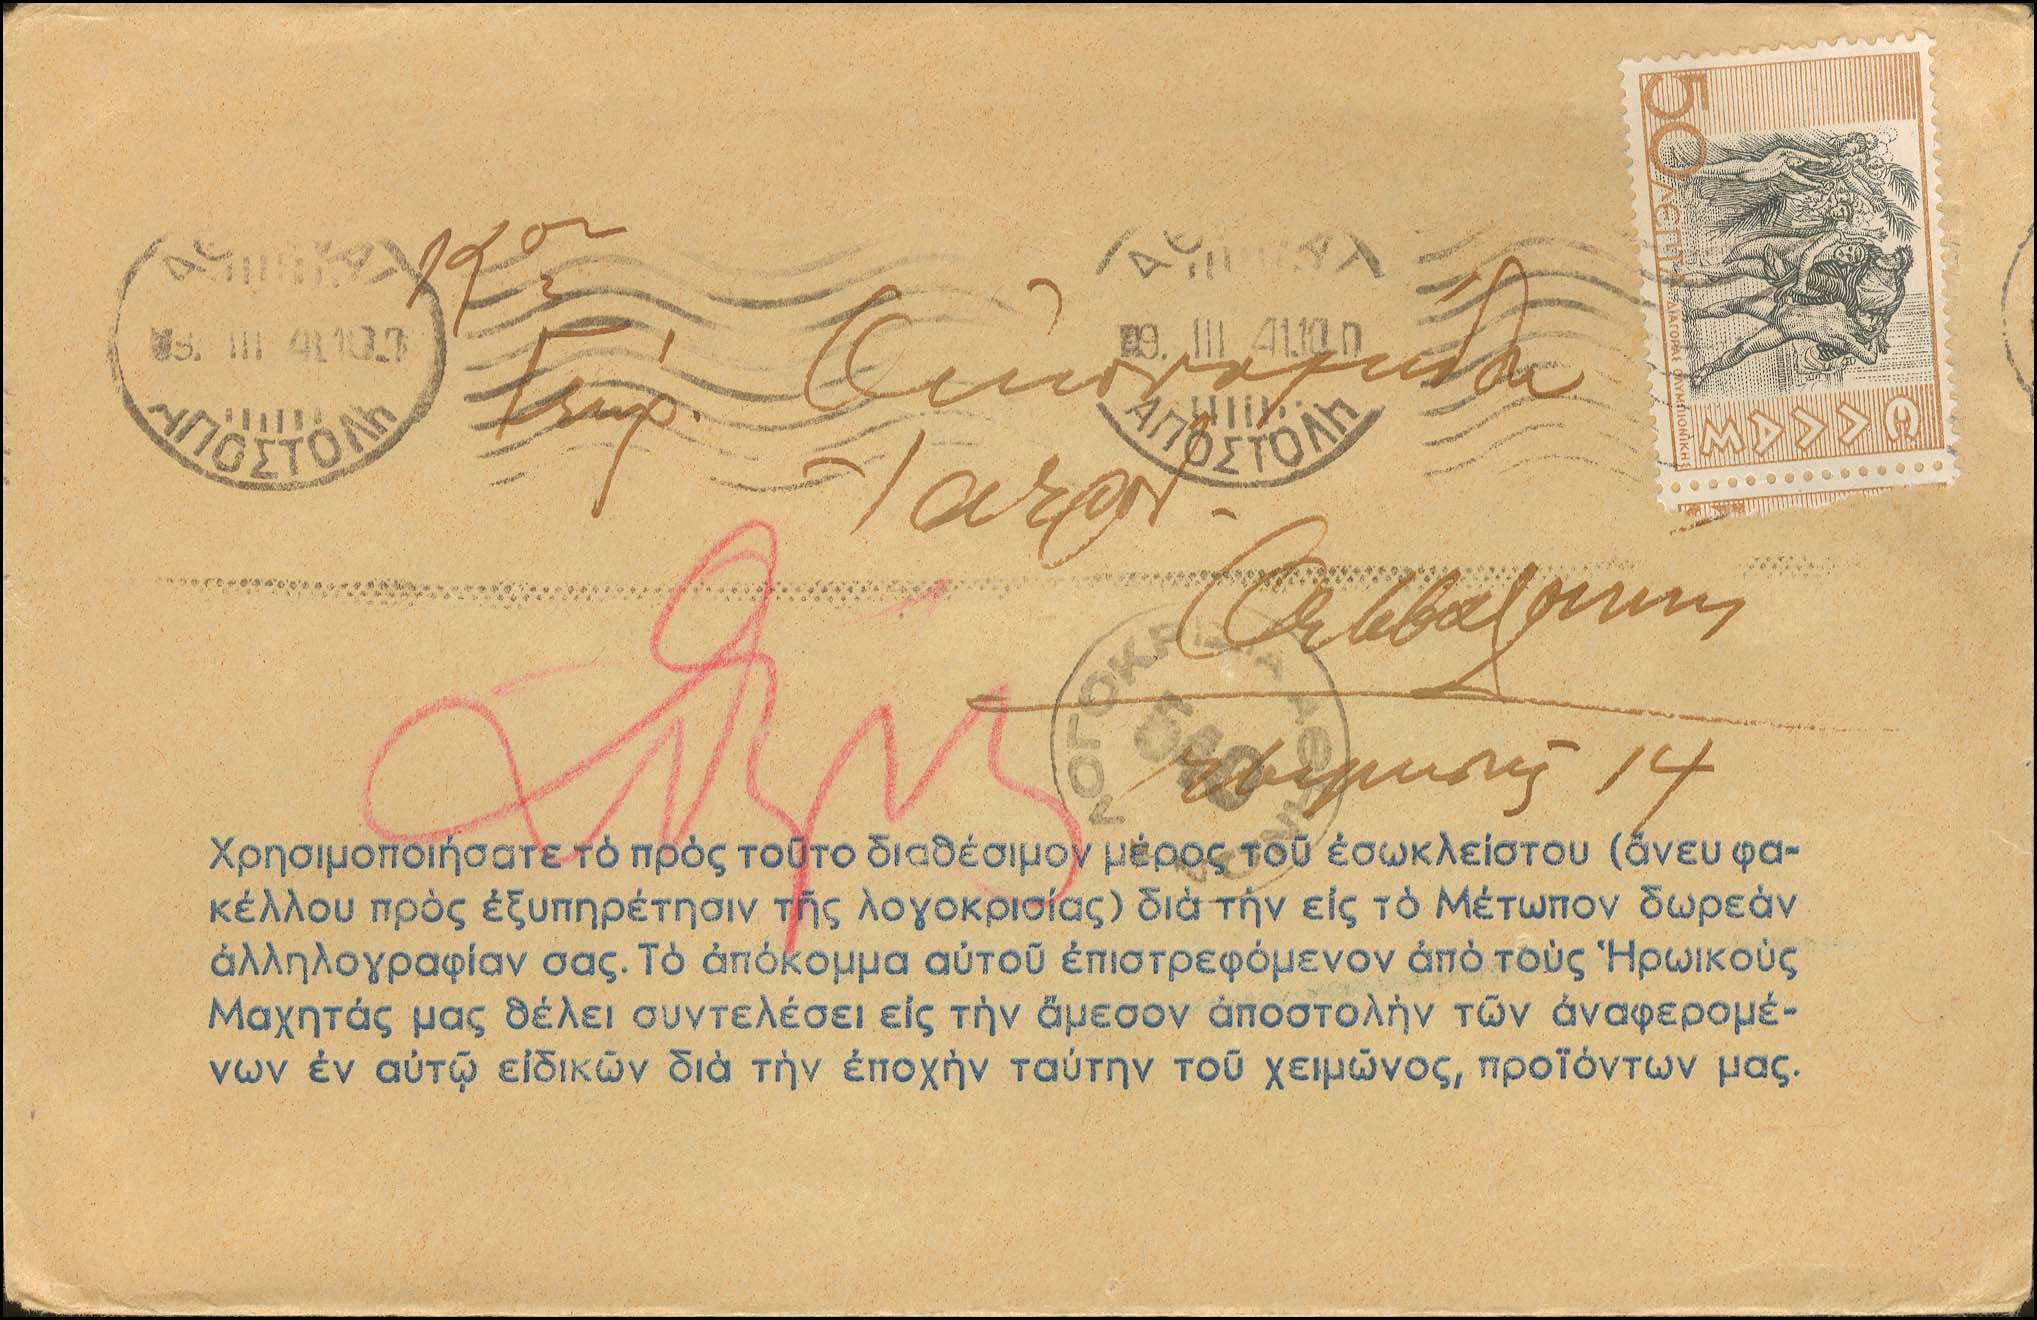 50 ΛΕΠΤΑ
ΔΙΑΓΟΡΑΣ ΟΛΥΜΠΙΟΝΙΚΗΣ
ΕΛΛΑΣ
ΑΠΟΣΤΟΛΗ
09. III 41.10
ΑΠΟΣΤΟΛΗ
Οἰκονομίδη
Ἰατρὸν
Θεσσαλονίκην
14
ΛΟΓΟΚΡΙΣΙΑ ΑΘΗΝΩΝ
Χρησιμοποιήσατε τὸ πρὸς τοῦτο διαθέσιμον μέρος τοῦ ἐσωκλείστου (ἄνευ φα-
κέλλου πρὸς ἐξυπηρέτησιν τῆς λογοκρισίας) διὰ τὴν εἰς τὸ Μέτωπον δωρεὰν
ἀλληλογραφίαν σας. Τὸ ἀπόκομμα αὐτοῦ ἐπιστρεφόμενον ἀπὸ τοὺς Ἡρωικοὺς
Μαχητάς μας θέλει συντελέσει εἰς τὴν ἄμεσον ἀποστολὴν τῶν ἀναφερομέ-
νων ἐν αὐτῷ εἰδικῶν διὰ τὴν ἐποχὴν ταύτην τοῦ χειμῶνος, προϊόντων μας.